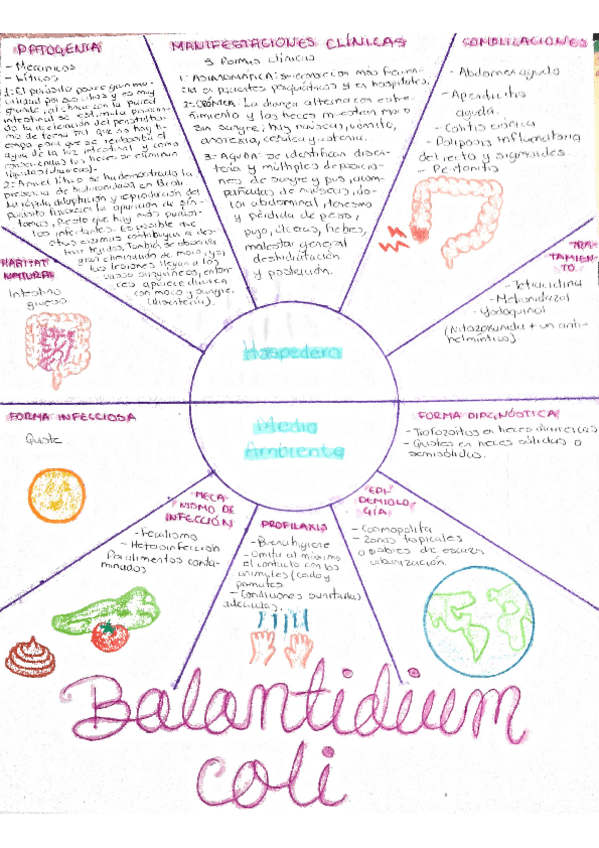 PATOGENIA
- Mecánicos
- Líticos
1: El parásito posee gran mo-
vilidad por sus cilios y es muy
grande, al chocar con la pared
intestinal se estimula
de la aceleración del peristaltis-
mo de forma tal que no hay ti-
empo para que se reabsorba el
agua de la luz intestinal y como
consecuencia las heces se eliminan
líquidas (diarrea).
2: A nivel lítico se ha demostrado la
presencia de hialuronidasa en B.coli.
La rápida adaptación y reproducción del
parásito favorecen la aparición de sín-
tomas, puesto que hay más
los infectantes. Es posible que
otras enzimas contribuyan a des-
truir tejidos. También se observa
gran eliminado de moco, ya
las lesiones llegan a los
vasos sanguíneos, enton-
ces aparece diarrea
con moco y sangre.
(disentería).
MANIFESTACIONES CLÍNICAS
3 formas clínicas
1: ASINTOMÁTICA: situación más frecuen-
cia en pacientes psiquiátricos y en hospitales.
2: CRÓNICA: La diarrea alterna con estre-
ñimiento y las heces muestran moco
sin sangre; hay náuseas, vómito,
anorexia, cefalea y astenia.
3: AGUDA: se identifican disen-
tería y múltiples deposicio-
nes de sangre y pus, acom-
pañadas de náuseas, do-
lor abdominal, tenesmo
y pérdida de peso,
pujo, úlceras, fiebre,
malestar general
deshidratación
y postración.
- Abdomen agudo
- Apendicitis
aguda.
- Colitis crónica
- Poliposis inflamatoria
del recto y sigmoides.
- Peritonitis
HABITAT
NATURAL
Intestino
grueso
TRA-
TAMIEN-
TO
- Tetraciclina
- Metronidazol
- Yodoquinol
(Nitazoxanida + un anti-
helmíntico)
Hospedero
Medio
Ambiente
FORMA INFECCIOSA
Quiste
FORMA DIAGNÓSTICA
- Trofozoitos en heces diarreicas
- Quistes en heces sólidas o
semisólidas.
MECA-
NISMO DE
INFECCIÓN
- Fecalismo
- Heteroinfección
Por alimentos conta-
minados
PROFILAXIS
- Buena higiene
- Omitir al máximo
el contacto con los
animales (cerdo y
primates.
- Condiciones sanitarias
adecuadas.
EPI-
DEMIOLO-
GÍA
- Cosmopolita
- Zonas tropicales
o pobres de escasa
urbanización.
Balantidium
coli